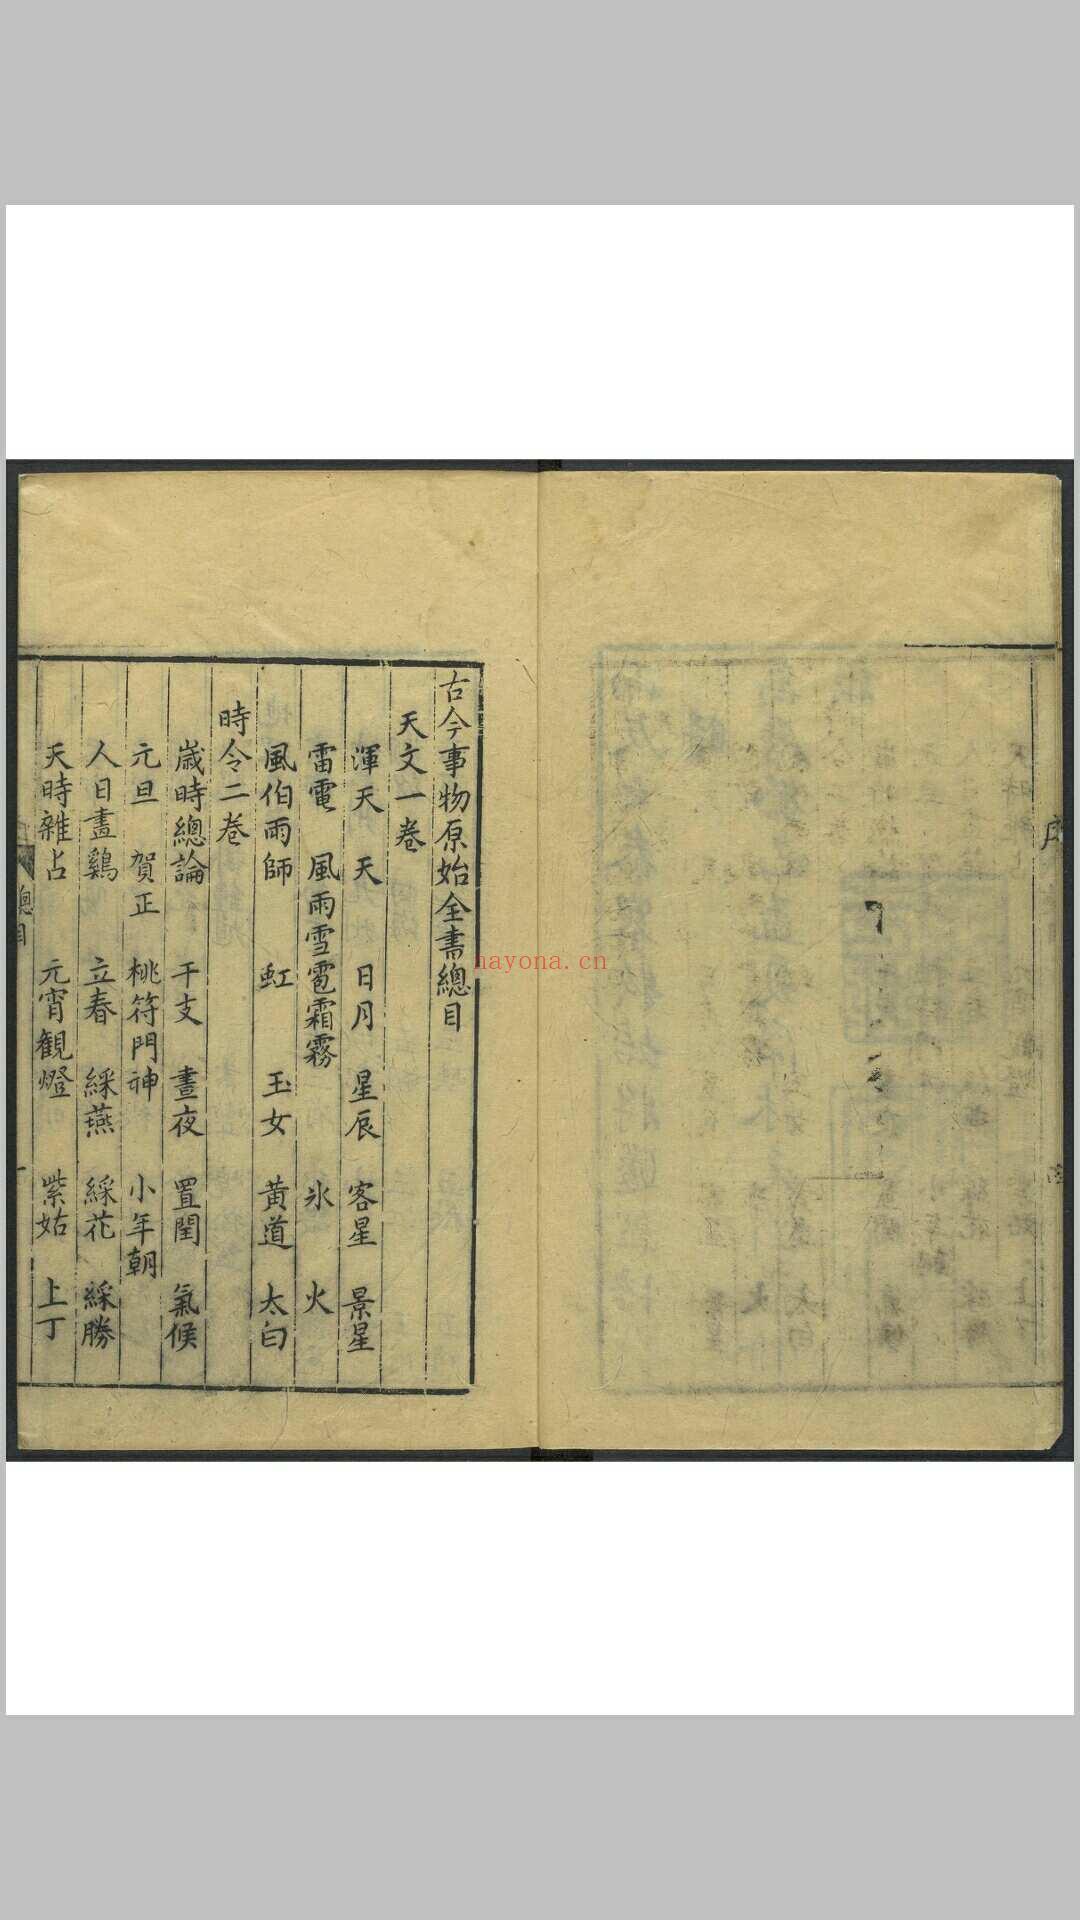 古今事物原始全書總目
天文一卷
渾天 天 日月 星辰 客星 景星
雷電 風雨雪雹霜霧 氷 火
風伯雨師 虹 玉女 黄道 太白
時令二卷
歲時總論 干支 晝夜 置閏 氣候
元旦 賀正 桃符門神 小年朝
人日畫鷄 立春 綵燕 綵花 綵勝
天時雜占 元宵觀燈 紫姑 上丁
總目
nayona.cn